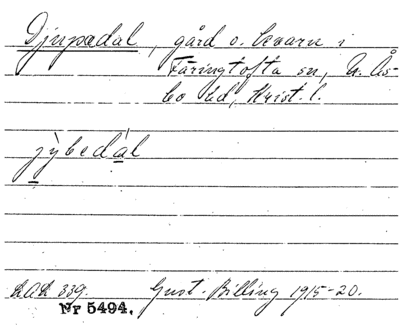 Djupadal, gård o. kvarn i
Färingtofta sn, N. Ås-
bo hd, Krist. l.
jỳbedál
LAL 339. Gust. Billing 1915-20.
Nr 5494.